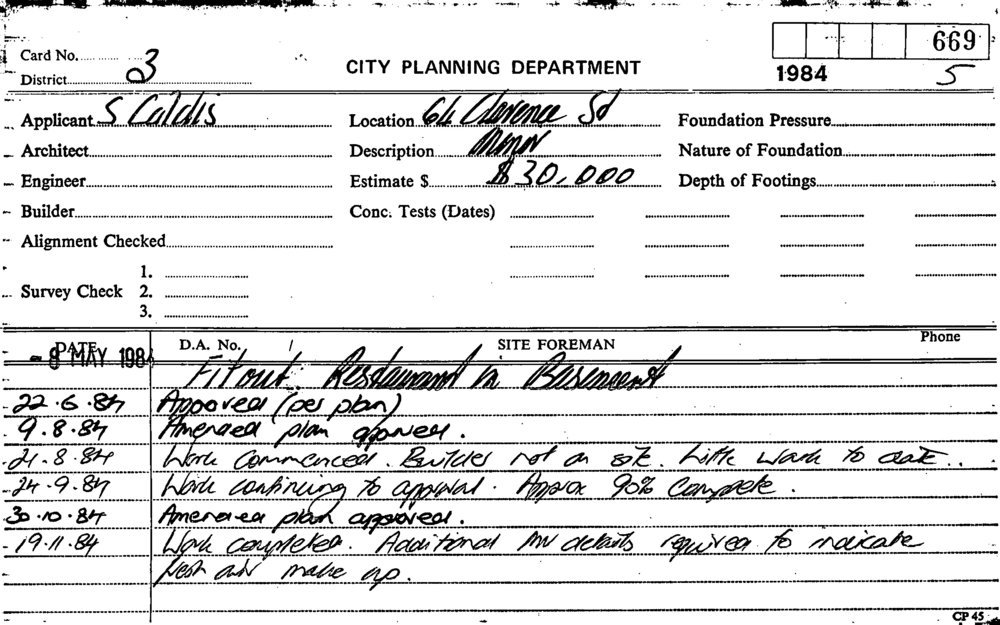 669
Card No.
District 3
CITY PLANNING DEPARTMENT
1984 5
Applicant S Caldis
Location 64 Clarence St
Foundation Pressure
Architect
Description Minor
Nature of Foundation
Engineer
Estimate $ $30,000
Depth of Footings
Builder
Conc. Tests (Dates)
Alignment Checked
1.
Survey Check 2.
3.
DATE D.A. No. / SITE FOREMAN Phone
- 8 MAY 1984
Fitout Restaurant in Basement
22.6.84 Approved (per plan)
9.8.84 Amended plan approved.
21.8.84 Work commenced. Builder not on site. Little work to date..
24.9.84 Work continuing to approval. Approx 90% complete.
30.10.84 Amended plan approved.
19.11.84 Work completed. Additional details required to indicate
fresh air make up.
CP 45